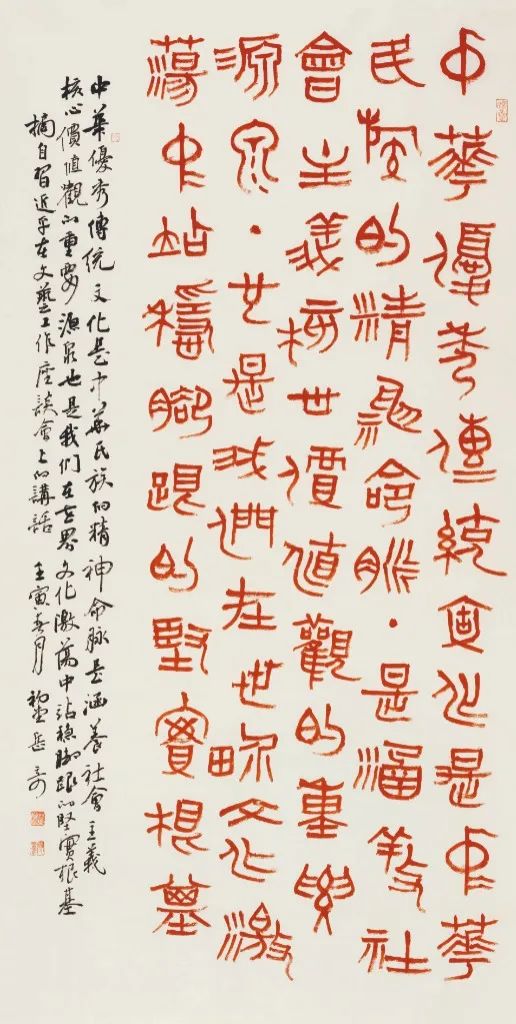 中華優秀傳統文化是中華
民族的精神命脈·是涵養社
會主義核心價值觀的重要
源泉·也是我們在世界文化激
蕩中站穩腳跟的堅實根基
中華優秀傳統文化是中華民族的精神命脉是涵养社會主義
核心價值觀的重要源泉也是我们在世界文化激蕩中站稳脚跟的堅實根基
摘自習近平在文藝工作座談會上的講話 壬寅春月